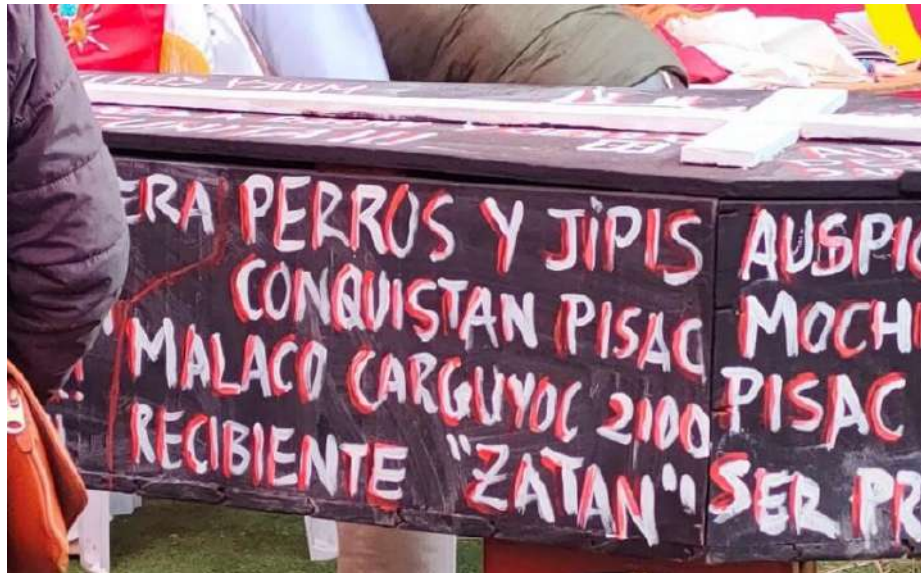 ERA PERROS Y JiPIS
CONQUISTAN PISAC
MALACO CARGUYOC 2100
RECIBIENTE "ZATAN"
AUSPIC
MOCH
PISAC
SER PR